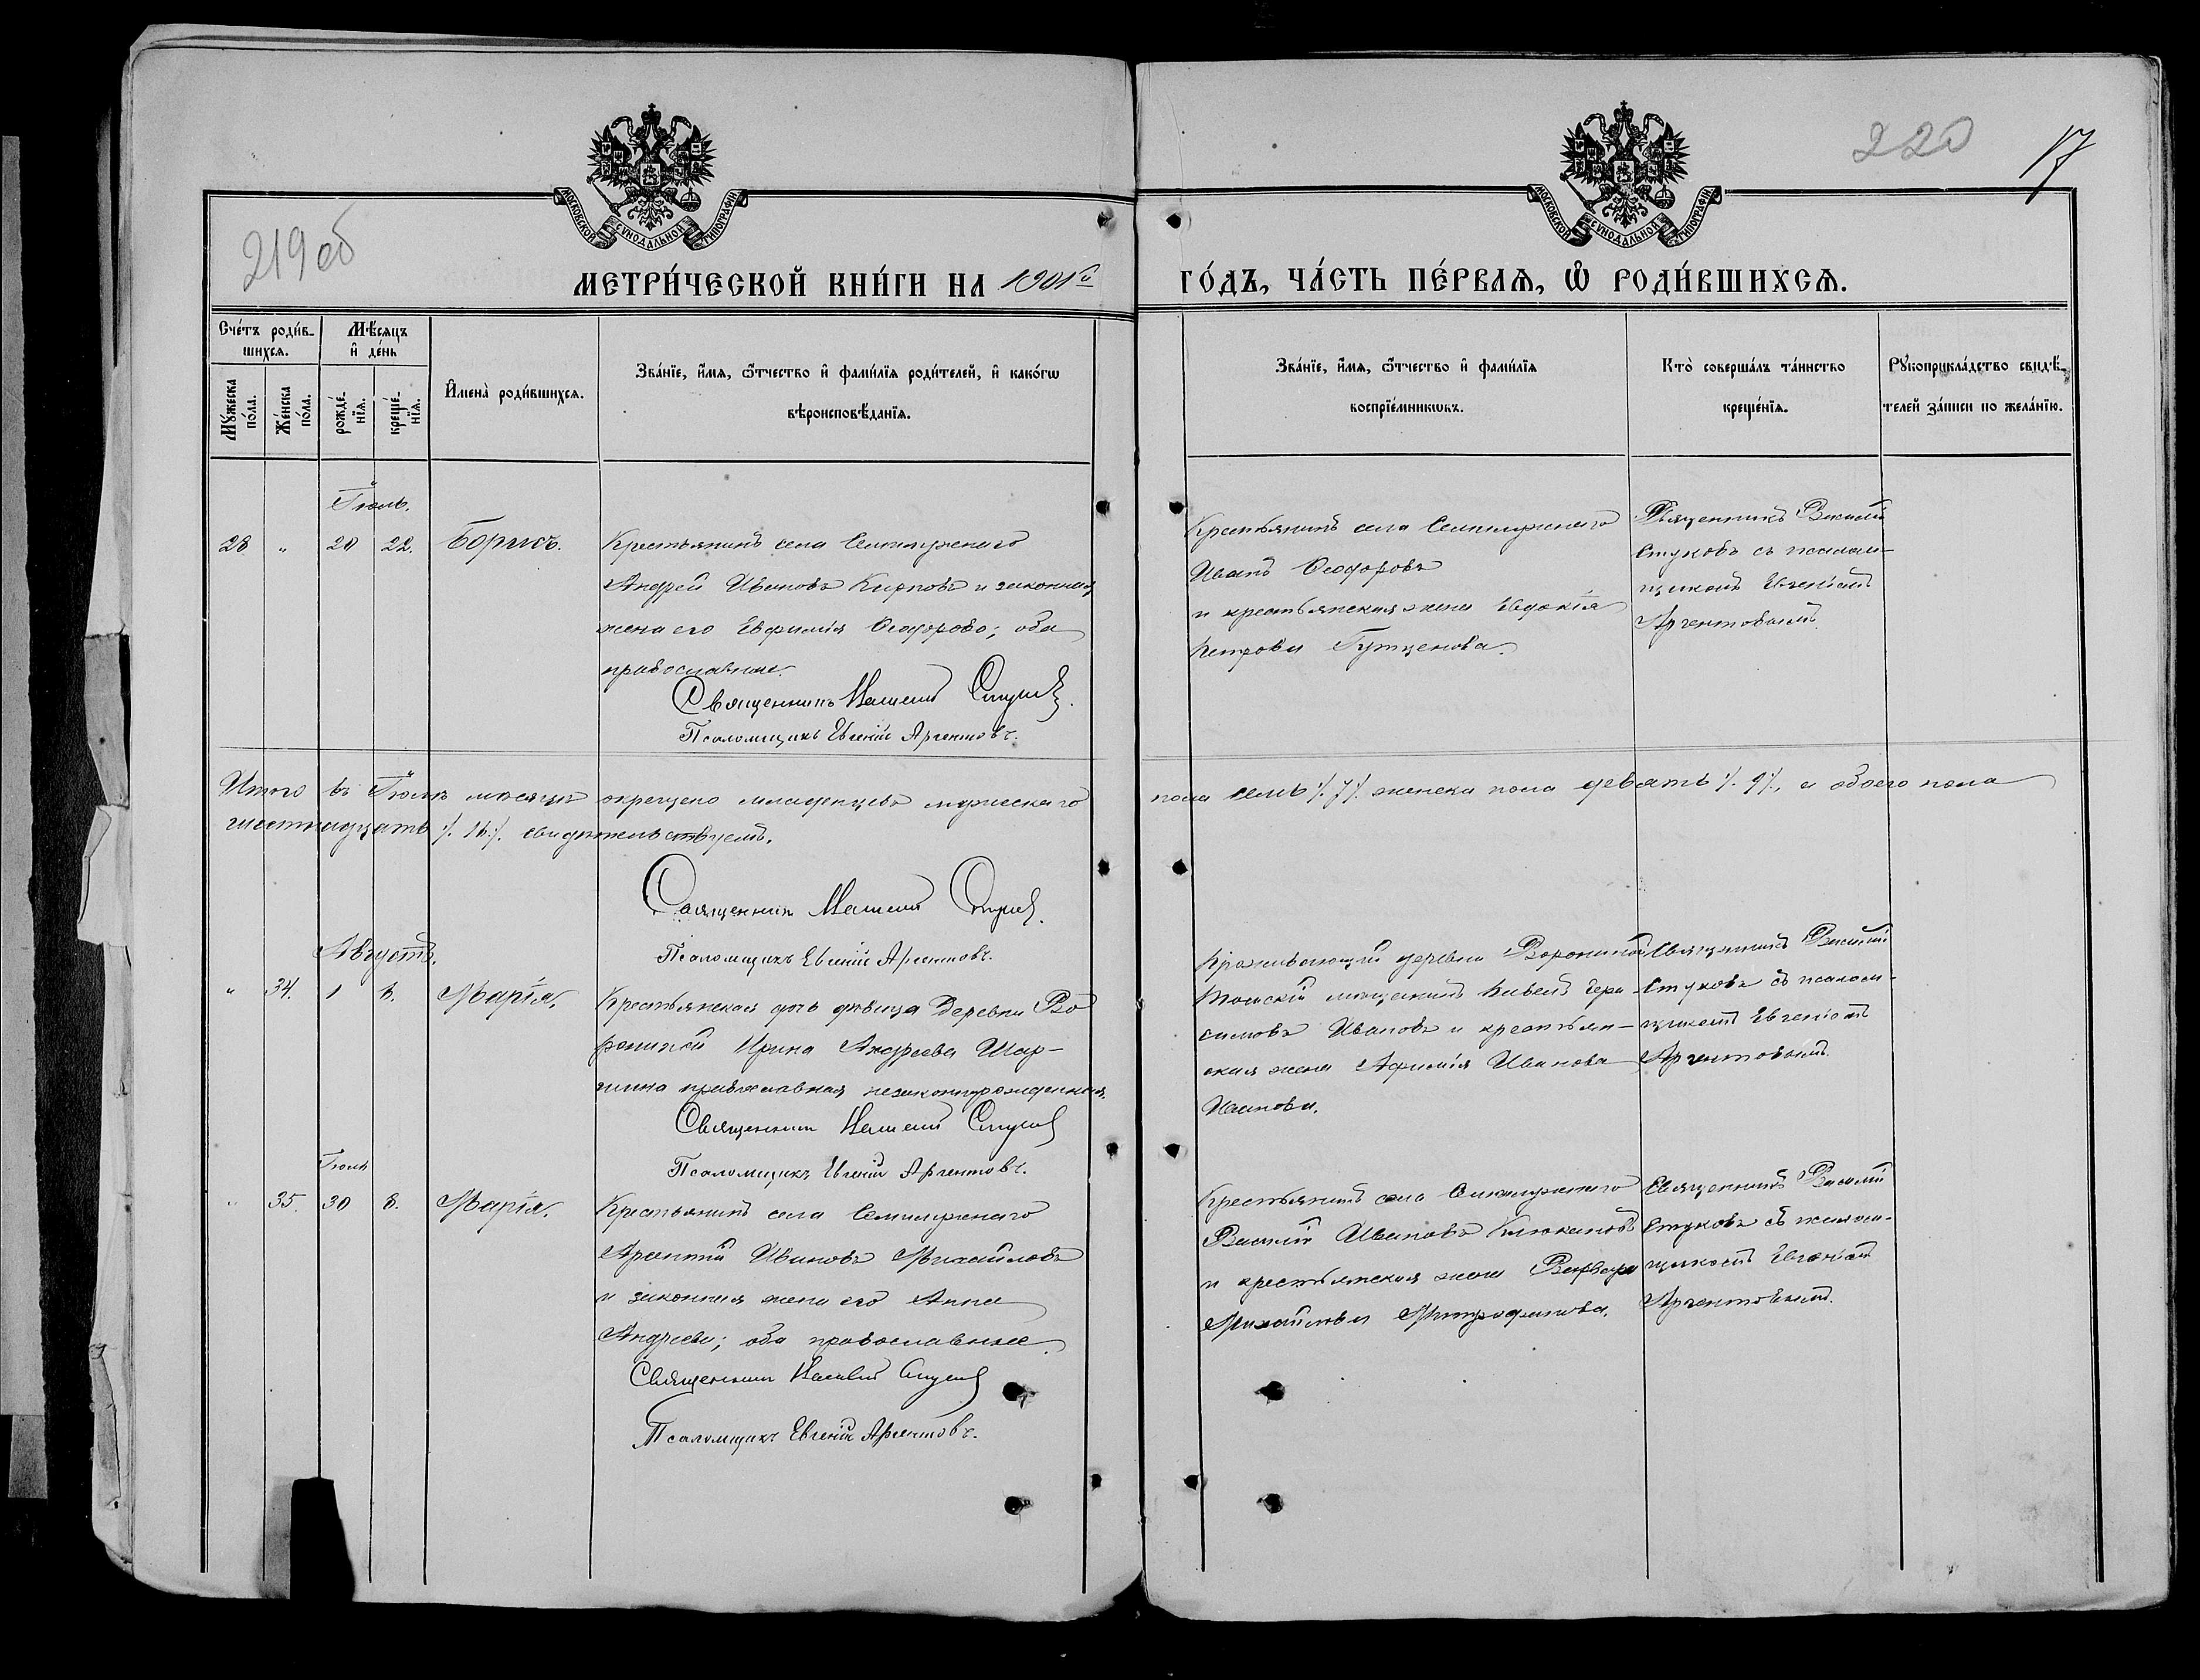 219 об
220
17
МОСКОВСКОЙ СѴНОДАЛЬНОЙ ТИПОГРАФІИ
МОСКОВСКОЙ СѴНОДАЛЬНОЙ ТИПОГРАФІИ
МЕТРИ́ЧЕСКОЙ КНИ́ГИ НА 1901й ГО́ДЪ, ЧА́СТЬ ПЕ́РВАѦ, Ѡ РОДИ́ВШИХСѦ.
Сче́тъ роди́в-
шихсѧ.
Мѣ́сѧцъ
и҆ де́нь
Мꙋ́жеска
по́ла.
Же́нска
по́ла.
рожде́-
нїѧ.
креще́-
нїѧ.
И҆мена̀ роди́вшихсѧ.
Зва́нїе, и҆́мѧ, ѻ҆́тчество и҆ фами́лїѧ роди́телей, и҆ како́гѡ
вѣроисповѣ́данїѧ.
Зва́нїе, и҆́мѧ, ѻ҆́тчество и҆ фами́лїѧ
воспрїе́мникѡвъ.
Кто̀ соверша́лъ та́инство
креще́нїѧ.
Рꙋкоприкла́дство свидѣ́-
телей за́писи по жела́нїю.
Іюль.
28 " 20 22. Борисъ.
Крестьянинъ села Семилужнаго
Андрей Ивановъ и законная
жена его Евфимія Ѳеодорова; оба
православные.
Священникъ Василій Стуковъ.
Псаломщикъ Евгеній Аргентовъ.
Крестьянинъ села Семилужнаго
Иванъ Ѳеодоровъ
и крестьянская жена Евдокія
Петрова
Священникъ Василій
Стуковъ съ псалом-
щикомъ Евгеніемъ
Аргентовымъ.
Итого въ Іюлѣ мѣсяцѣ окрещено младенцевъ мужескаго пола семь ./.7./. женска пола девять ./.9./., а обоего пола
шестнадцать ./.16./. свидѣтельствуемъ.
Священникъ Василій Стуковъ.
Псаломщикъ Евгеній Аргентовъ.
Августъ.
" 34. 1 6. Марія.
Крестьянская дочь дѣвица Деревни Во
рониной Ирина Андреева Шар-
ина православная незаконнорожденная.
Священникъ Василій Стуковъ
Псаломщикъ Евгеній Аргентовъ.
Проживающій деревни Ворониной
Томскій мѣщанинъ Павелъ Гера-
симовъ Ивановъ и крестьян-
ская жена Афимія Иванова
Иванова.
Священникъ Василій
Стуковъ съ псалом-
щикомъ Евгеніемъ
Аргентовымъ.
Іюль
" 35. 30 8. Марія.
Крестьянинъ села Семилужнаго
Арсентій Ивановъ Михайловъ
и законная жена его Анна
Андреева; оба православные.
Священникъ Василій Стуковъ
Псаломщикъ Евгеній Аргентовъ.
Крестьянинъ села Семилужнаго
Василій Ивановъ Клюкинъ
и крестьянская жена Варвара
Михайлова Митрофанова.
Священникъ Василій
Стуковъ съ псалом-
щикомъ Евгеніемъ
Аргентовымъ.